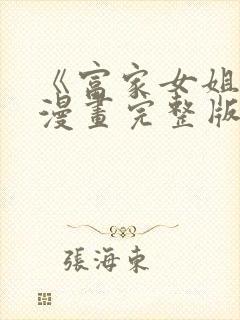 《富家女姐
漫畫完整版
張海東